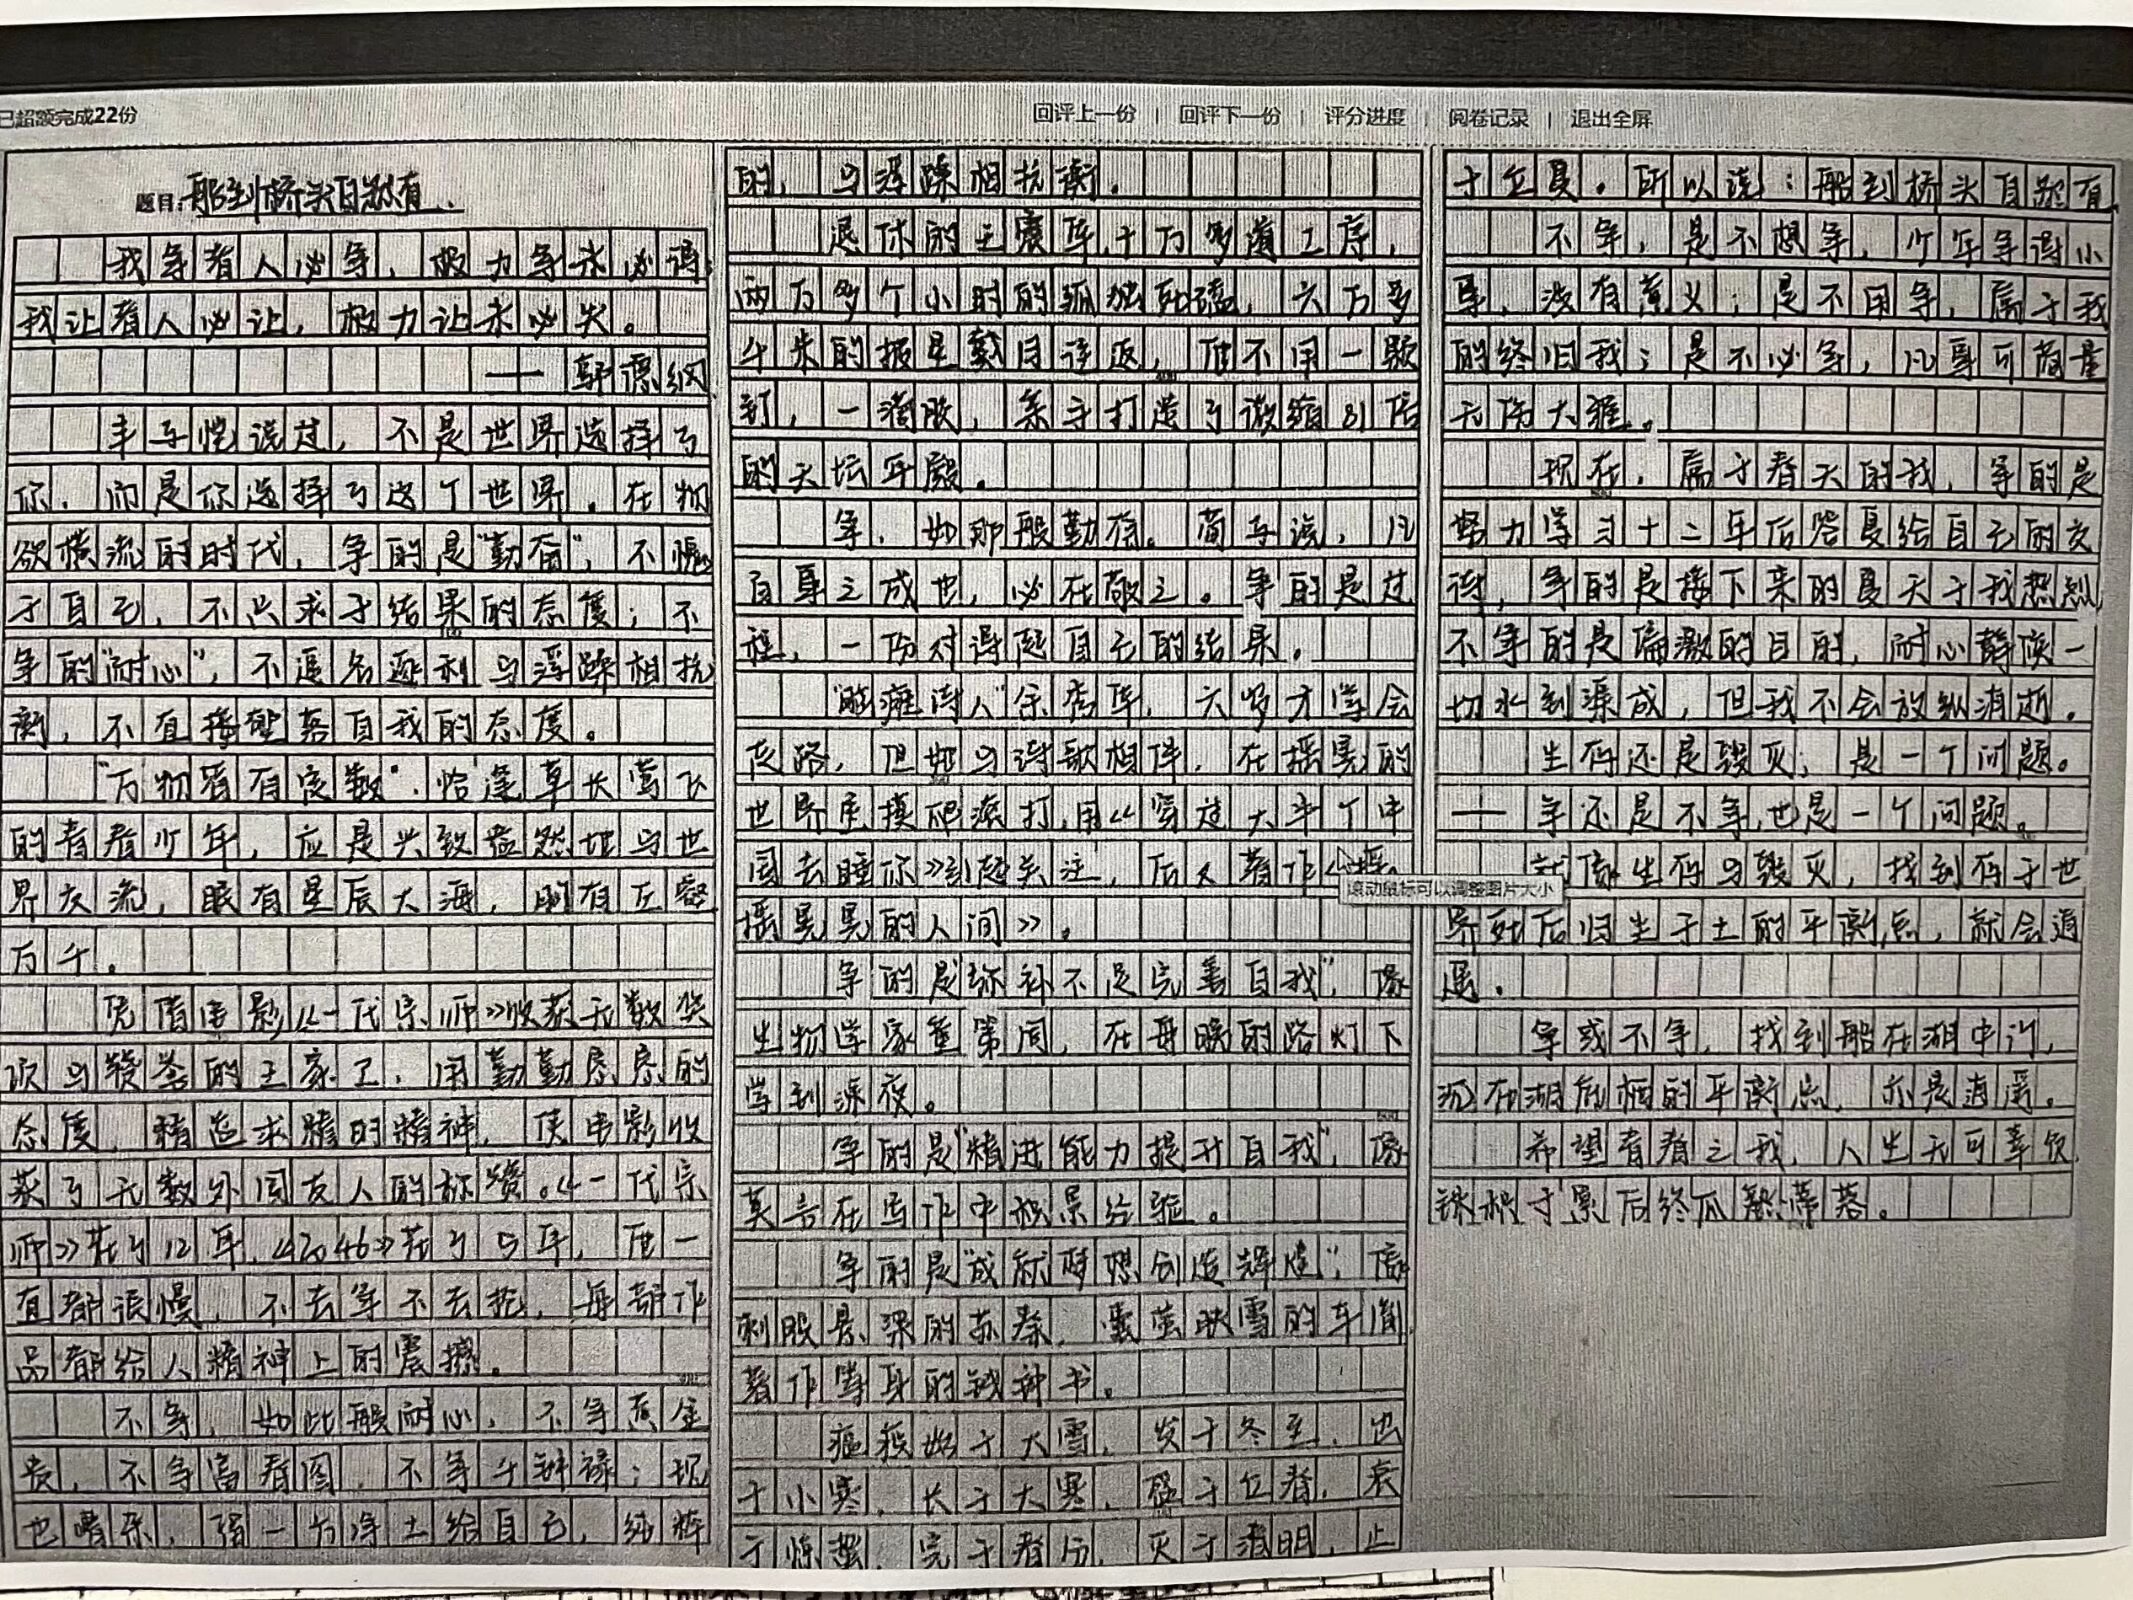 已超额完成22份
回评上一份 | 回评下一份 | 评分进度 | 阅卷记录 | 退出全屏
题目:船到桥头自然有
我争者人必争,极力争未必得;
我让者人必让,极力让未必失。
——郭德纲
丰子恺说过,不是世界选择了
你,而是你选择了这个世界。在物
欲横流的时代,争的是“勤奋”,不愧
于自己,不只求于结果的态度;不
争的“耐心”,不追名逐利与浮躁相抗
衡,不直接堕落自我的态度。
“万物皆有定数”,恰逢草长莺飞
的青春少年,应是兴致盎然地与世
界交流,眼有星辰大海,胸有丘壑
万千。
凭借电影《一代宗师》收获无数奖
项与赞誉的王家卫,用勤勤恳恳的
态度,精益求精的精神,使电影收
获了无数外国友人的称赞。《一代宗
师》花了12年,《2046》花了5年,他一
直都很慢,不去争不去抢,每部作
品都给人精神上的震撼。
不争,如此般耐心,不争黄金
贵,不争富春图,不争斗钟禄;现
世嘈杂,留一方净土给自己,纯粹
的,与浮躁相抗衡。
退休的王震华,十万多道工序,
两万多个小时的孤独死磕,六万多
斗米的披星戴月往返,他不用一颗
钉,一滴胶,亲手打造了微缩81倍
的天坛年殿。
争,如那般勤奋。荀子说,凡
百事之成也,必在敬之。争的是过
程,一份对得起自己的结果。
“脑瘫诗人”余秀华,六岁才学会
走路,但她与诗歌相伴,在摇晃的
世界里摸爬滚打,用《穿过大半个中
国去睡你》引起关注,后又著作《摇
滚动鼠标可以调整图片大小
摇晃晃的人间》。
争的是“弥补不足完善自我”,像
生物学家童第周,在每晚的路灯下
学到深夜。
争的是“精进能力提升自我”,像
莫言在写作中积累经验。
争的是“成就梦想创造辉煌”,像
刺股悬梁的苏秦,囊萤映雪的车胤,
著作等身的钱钟书。
瘟疫始于大雪,发于冬至,出
于小寒,长于大寒,盛于立春,衰
于惊蛰,完于春分,灭于清明,止
于立夏。所以说:船到桥头自然有
不争,是不想争,少年争得小
事,没有意义;是不用争,属于我
的终归我;是不必争,凡事可商量
无伤大雅。
现在,属于春天的我,争的是
努力学习十二年后答复给自己的交
待,争的是接下来的夏天于我热烈,
不争的是偏激的目的,耐心静候一
切水到渠成,但我不会放纵消逝。
生存还是毁灭,是一个问题。
——争还是不争,也是一个问题。
就像生存与毁灭,找到存于世
界死后归尘于土的平衡点,就会逍
遥。
争或不争,找到船在湖中行,
沉在湖底栖的平衡点,亦是逍遥。
希望青春之我,人生无可辜负
铢积寸累后终瓜熟蒂落。